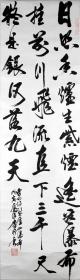 日照香爐生紫煙遙看瀑布
挂前川飛流直下三千尺
疑是銀河落九天